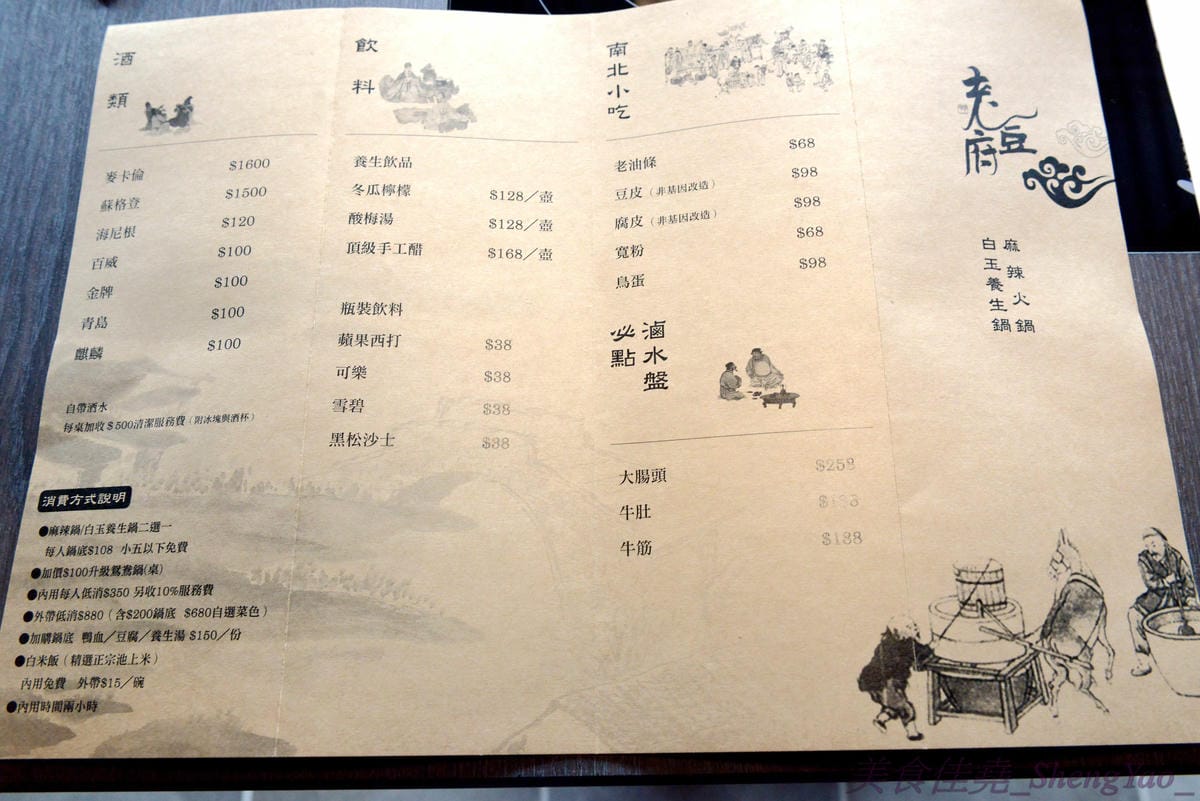 酒類
麥卡倫 $1600
蘇格登 $1500
海尼根 $120
百威 $100
金牌 $100
青島 $100
麒麟 $100
自帶酒水
每桌加收$500清潔服務費（附冰塊與酒杯）
消費方式說明
●麻辣鍋/白玉養生鍋二選一
每人鍋底$108 小五以下免費
●加價$100升級鴛鴦鍋(桌)
●內用每人低消$350 另收10%服務費
●外帶低消$880（含$200鍋底 $680自選菜色）
●加購鍋底 鴨血／豆腐／養生湯 $150／份
●白米飯（精選正宗池上米）
內用免費 外帶$15／碗
●內用時間兩小時
飲料
養生飲品
冬瓜檸檬 $128／壺
酸梅湯 $128／壺
頂級手工醋 $168／壺
瓶裝飲料
蘋果西打 $38
可樂 $38
雪碧 $38
黑松沙士 $38
南北小吃
老油條 $68
豆皮（非基因改造） $98
腐皮（非基因改造） $98
寬粉 $68
鳥蛋 $98
滷水盤
必點
大腸頭 $258
牛肚
牛筋 $188
老豆府
麻辣火鍋
白玉養生鍋
美食佳堯_ShengYao_